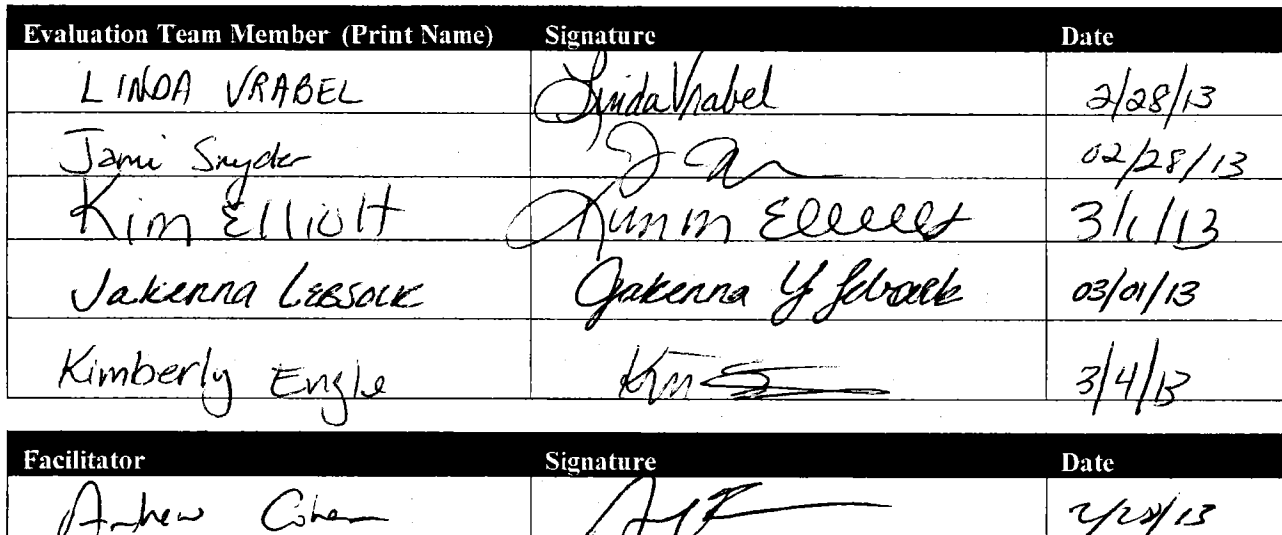 Evaluation Team Member (Print Name) Signature Date
LINDA VRABEL Linda Vrabel 2/28/13
Jami Snyder 02/28/13
Kim Elliott 3/1/13
Jakenna Lebsock Jakenna Y Lebsock 03/01/13
Kimberly Engle Kim 3/4/13
Facilitator Signature Date
Andrew Cohen 2/28/13